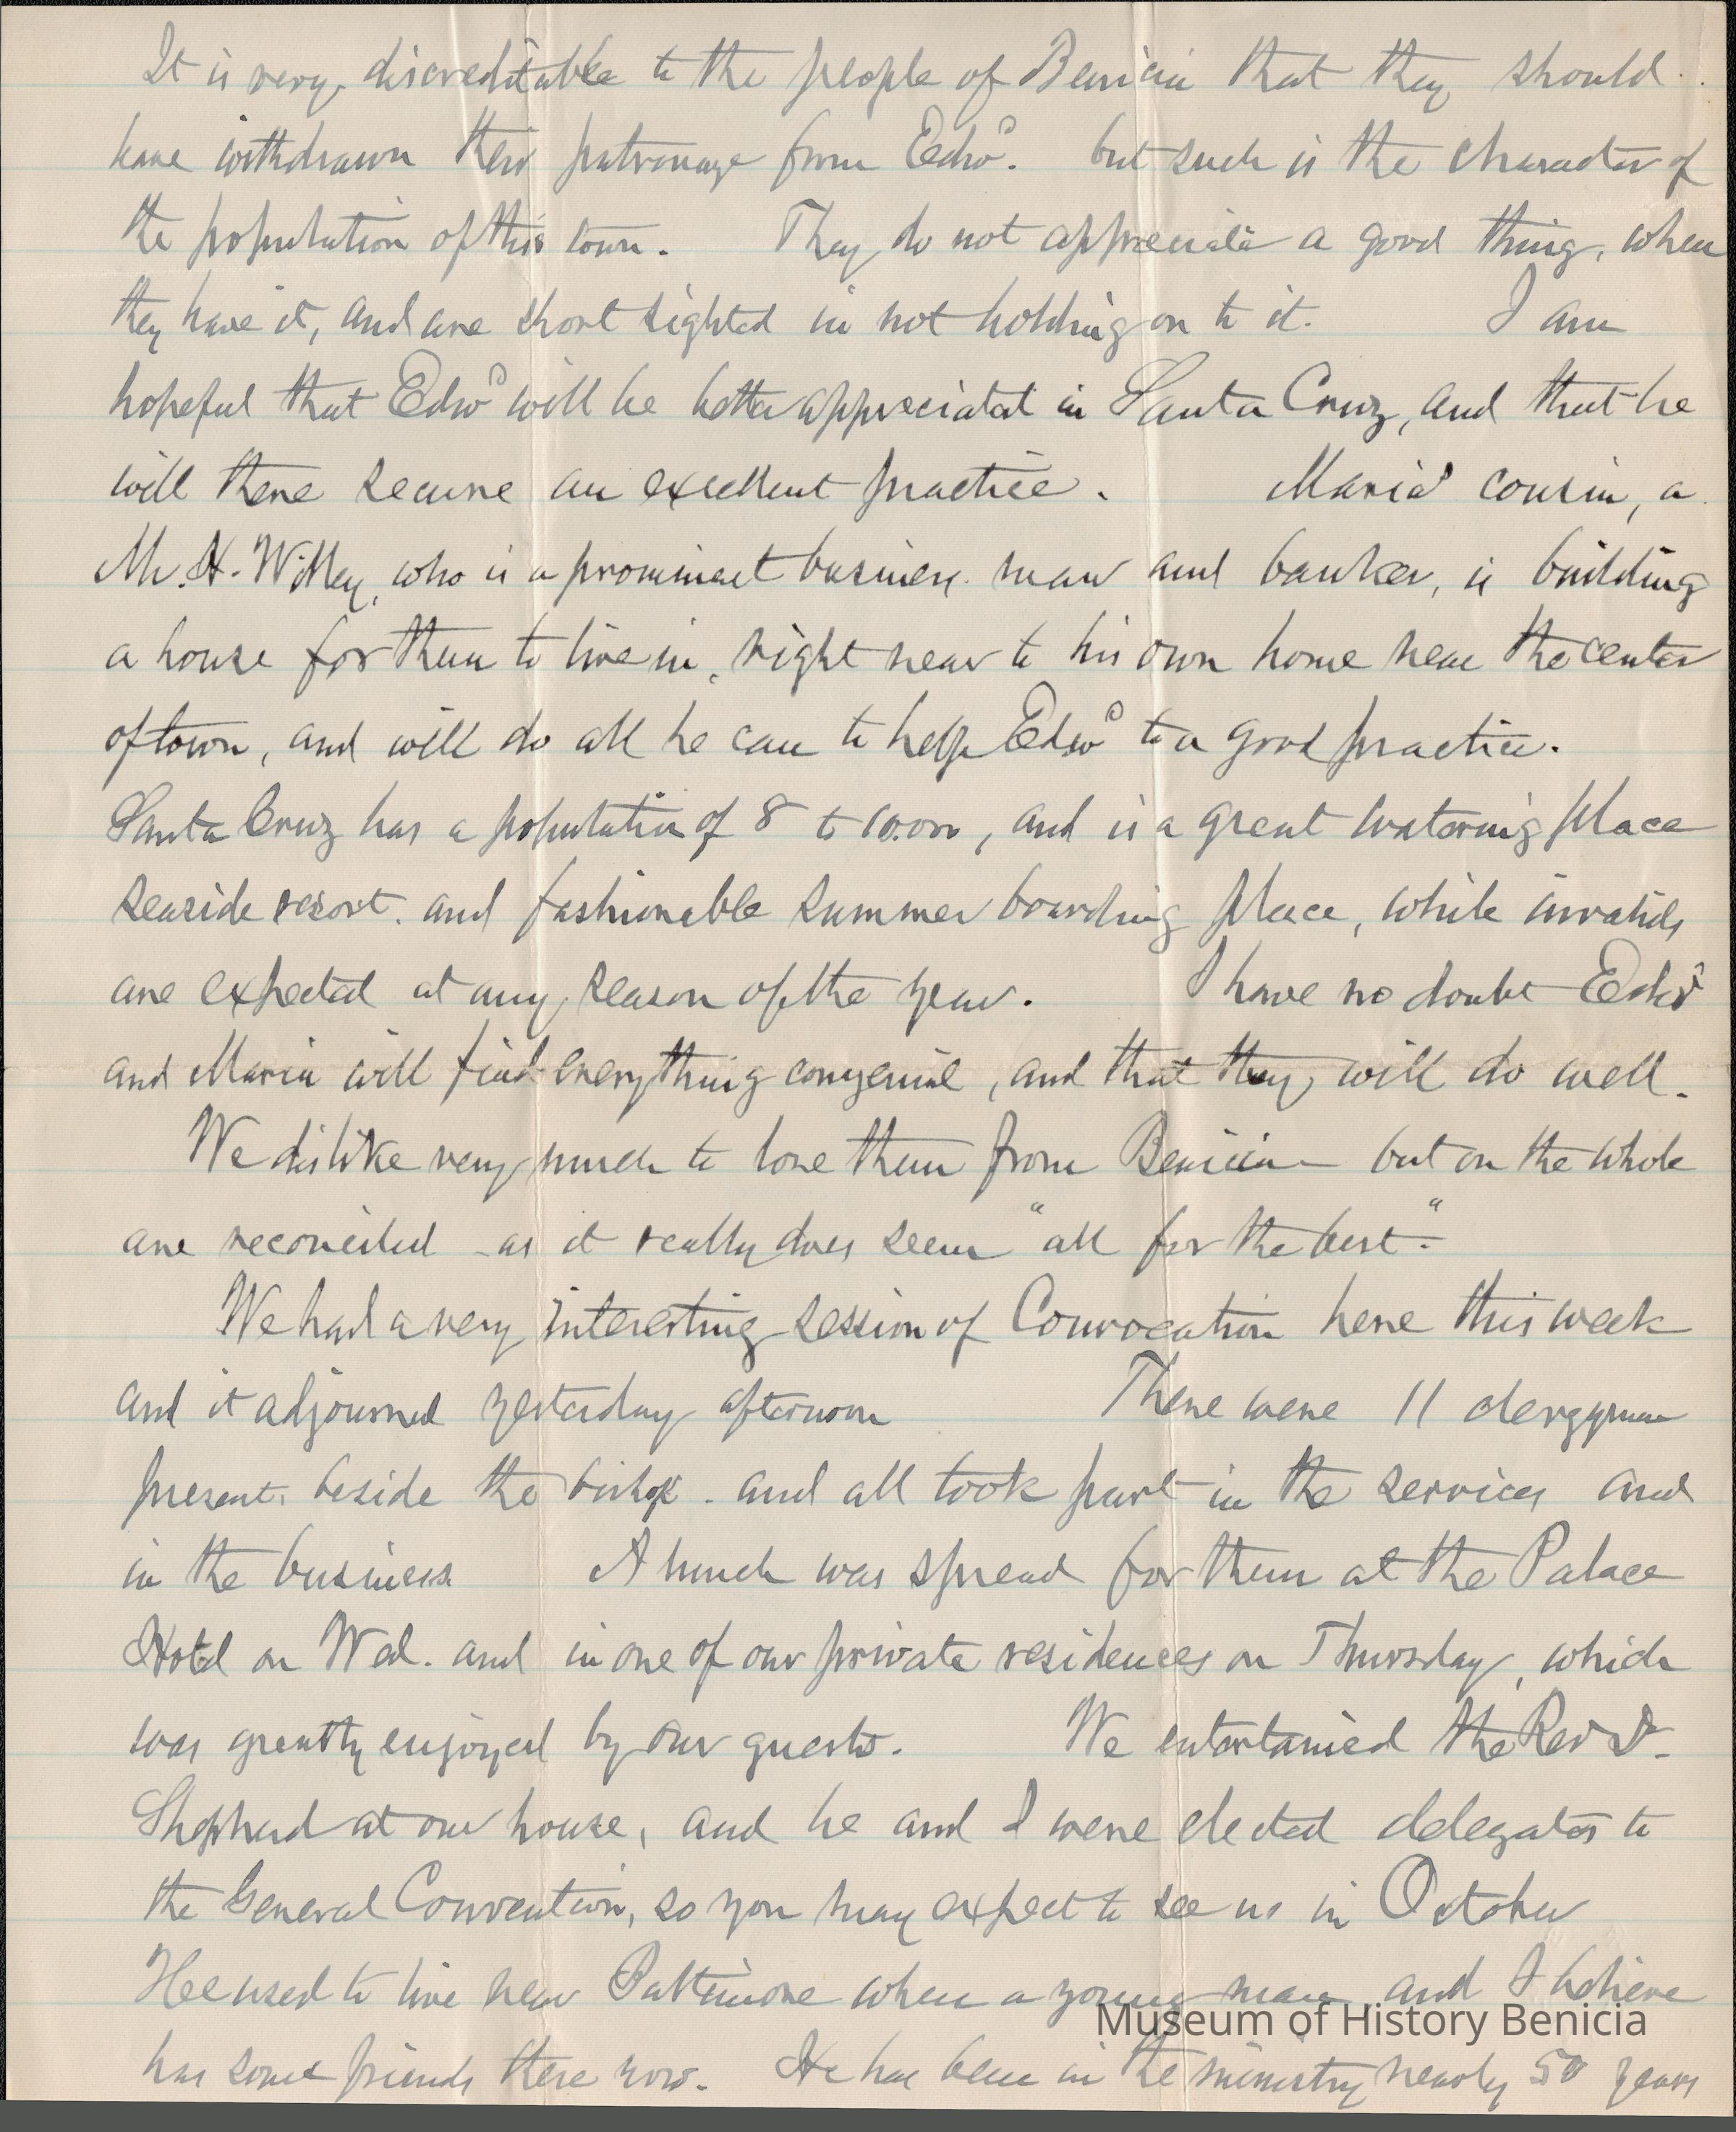 It is very discreditable to the people of Benicia that they should
have withdrawn their patronage from Edwd. but such is the character of
the population of this town. They do not appreciate a good thing, when
they have it, and are short sighted in not holding on to it. I am
hopeful that Edwd will be better appreciated in Santa Cruz, and that he
will there secure an excellent practice. Maria's cousin, a
Mr. H. Willey, who is a prominent business man and banker, is building
a house for them to live in, right near to his own home near the center
of town, and will do all he can to help Edwd to a good practice.
Santa Cruz has a population of 8 to 10.000, and is a great watering place
seaside resort. and fashionable summer boarding place, while invalids
are expected at any season of the year. I have no doubt Edwd
and Maria will find everything congenial, and that they will do well.
We dislike very much to lose them from Benicia - but on the whole
are reconciled - as it really does seem "all for the best."
We had a very interesting session of Convocation here this week
and it adjourned yesterday afternoon There were 11 clergymen
present. beside the bishop. and all took part in the services and
in the business. A lunch was spread for them at the Palace
Hotel on Wed. and in one of our private residences on Thursday, which
was greatly enjoyed by our guests. We entertained the Rev Dr.
Shepherd at our house, and he and I were elected delegates to
the General Convention, so you may expect to see us in October
He used to live near Baltimore when a young man and I believe
has some friends there now. He has been in the ministry nearly 50 years
Museum of History Benicia